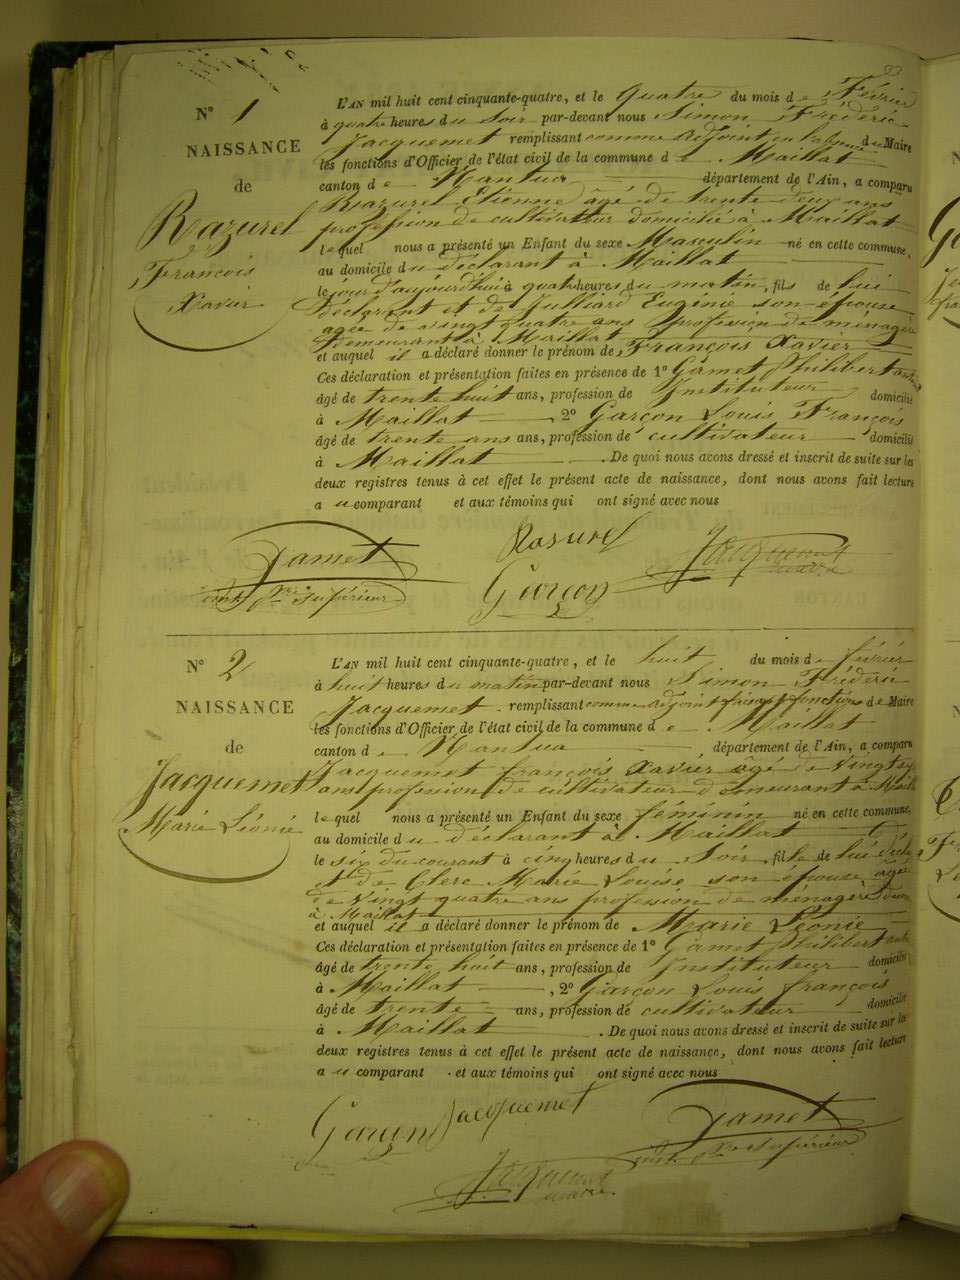 N° 1
NAISSANCE
de
Razurel
François
Xavier
L'AN mil huit cent cinquante-quatre, et le quatre du mois de Février
à quatre heures du soir par-devant nous Simon Frédéric
Jacquemet remplissant comme adjoint en l'absence du Maire
les fonctions d'Officier de l'état civil de la commune de Maillat
canton de Nantua département de l'Ain, a comparu
Razurel Etienne âgé de trente deux ans
profession de cultivateur domicilié à Maillat
lequel nous a présenté un Enfant du sexe Masculin né en cette commune,
au domicile du déclarant à Maillat
le jour d'aujourd'hui à quatre heures du matin, fils de lui
déclarant et de Julliard Eugénie son épouse
agée de vingt quatre ans profession de ménagère
demeurant à Maillat
et auquel il a déclaré donner le prénom de François Xavier
Ces déclaration et présentation faites en présence de 1° Gamet Philibert
âgé de trente huit ans, profession de Instituteur domicilié
à Maillat 2° Garçon Louis François
âgé de trente ans ans, profession de cultivateur domicilié
à Maillat . De quoi nous avons dressé et inscrit de suite sur les
deux registres tenus à cet effet le présent acte de naissance, dont nous avons fait lecture
au comparant et aux témoins qui ont signé avec nous
Gamet Rasurel Jacquemet
supérieur Garçon
N° 2
NAISSANCE
de
Jacquemet
Marie Léonie
L'AN mil huit cent cinquante-quatre, et le huit du mois de février
à huit heures du matin par-devant nous Simon Frédéric
Jacquemet remplissant comme adjoint fonctions de Maire
les fonctions d'Officier de l'état civil de la commune de Maillat
canton de Nantua , département de l'Ain, a comparu
Jacquemet françois Xavier âgé de vingt
ans profession de cultivateur demeurant à
lequel nous a présenté un Enfant du sexe féminin né en cette commune,
au domicile du déclarant à Maillat
le six du courant à cinq heures du Soir, fille de lui
et de Clerc Marie Louise son épouse agée
de vingt quatre ans profession de ménagère
à Maillat
et auquel il a déclaré donner le prénom de Marie Léonie
Ces déclaration et présentation faites en présence de 1° Gamet Philibert
âgé de trente huit ans, profession de Instituteur domicilié
à Maillat , 2° Garçon Louis françois
âgé de trente ans, profession de cultivateur domicilié
à Maillat . De quoi nous avons dressé et inscrit de suite sur la
deux registres tenus à cet effet le présent acte de naissance, dont nous avons fait lecture
au comparant et aux témoins qui ont signé avec nous
Garçon Jacquemet Gamet
supérieur
Jacquemet